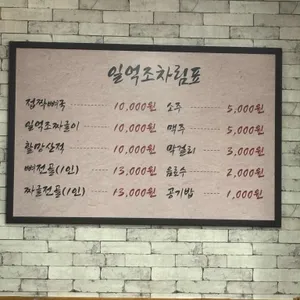 일억조차림표
접짝뼈국 10,000원 소주 5,000원
일억조짜글이 10,000원 맥주 5,000원
할망산적 10,000원 막걸리 3,000원
뼈전골(1인) 13,000원 음료수 2,000원
짜글전골(1인) 13,000원 공기밥 1,000원